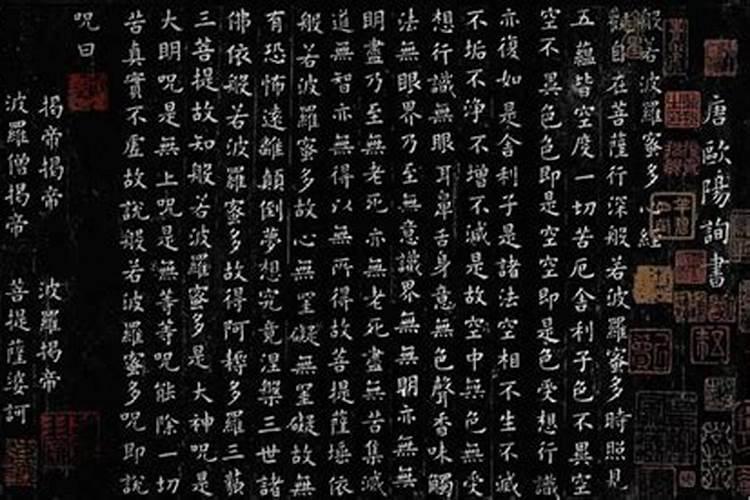 唐歐陽詢書
般若波羅蜜多心經
觀自在菩薩行深般若波羅蜜多時照見
五蘊皆空度一切苦厄舍利子色不異空
空不異色色即是空空即是色受想行識
亦復如是舍利子是諸法空相不生不滅
不垢不淨不增不減是故空中無色無受
想行識無眼耳鼻舌身意無色聲香味觸
法無眼界乃至無意識界無無明亦無無
明盡乃至無老死亦無老死盡無苦集滅
道無智亦無得以無所得故菩提薩埵依
般若波羅蜜多故心無罣礙無罣礙故無
有恐怖遠離顛倒夢想究竟涅槃三世諸
佛依般若波羅蜜多故得阿耨多羅三藐
三菩提故知般若波羅蜜多是大神呪是
大明呪是無上呪是無等等呪能除一切
苦真實不虛故說般若波羅蜜多呪即說
呪曰
揭帝揭帝 波羅揭帝
波羅僧揭帝 菩提薩婆訶